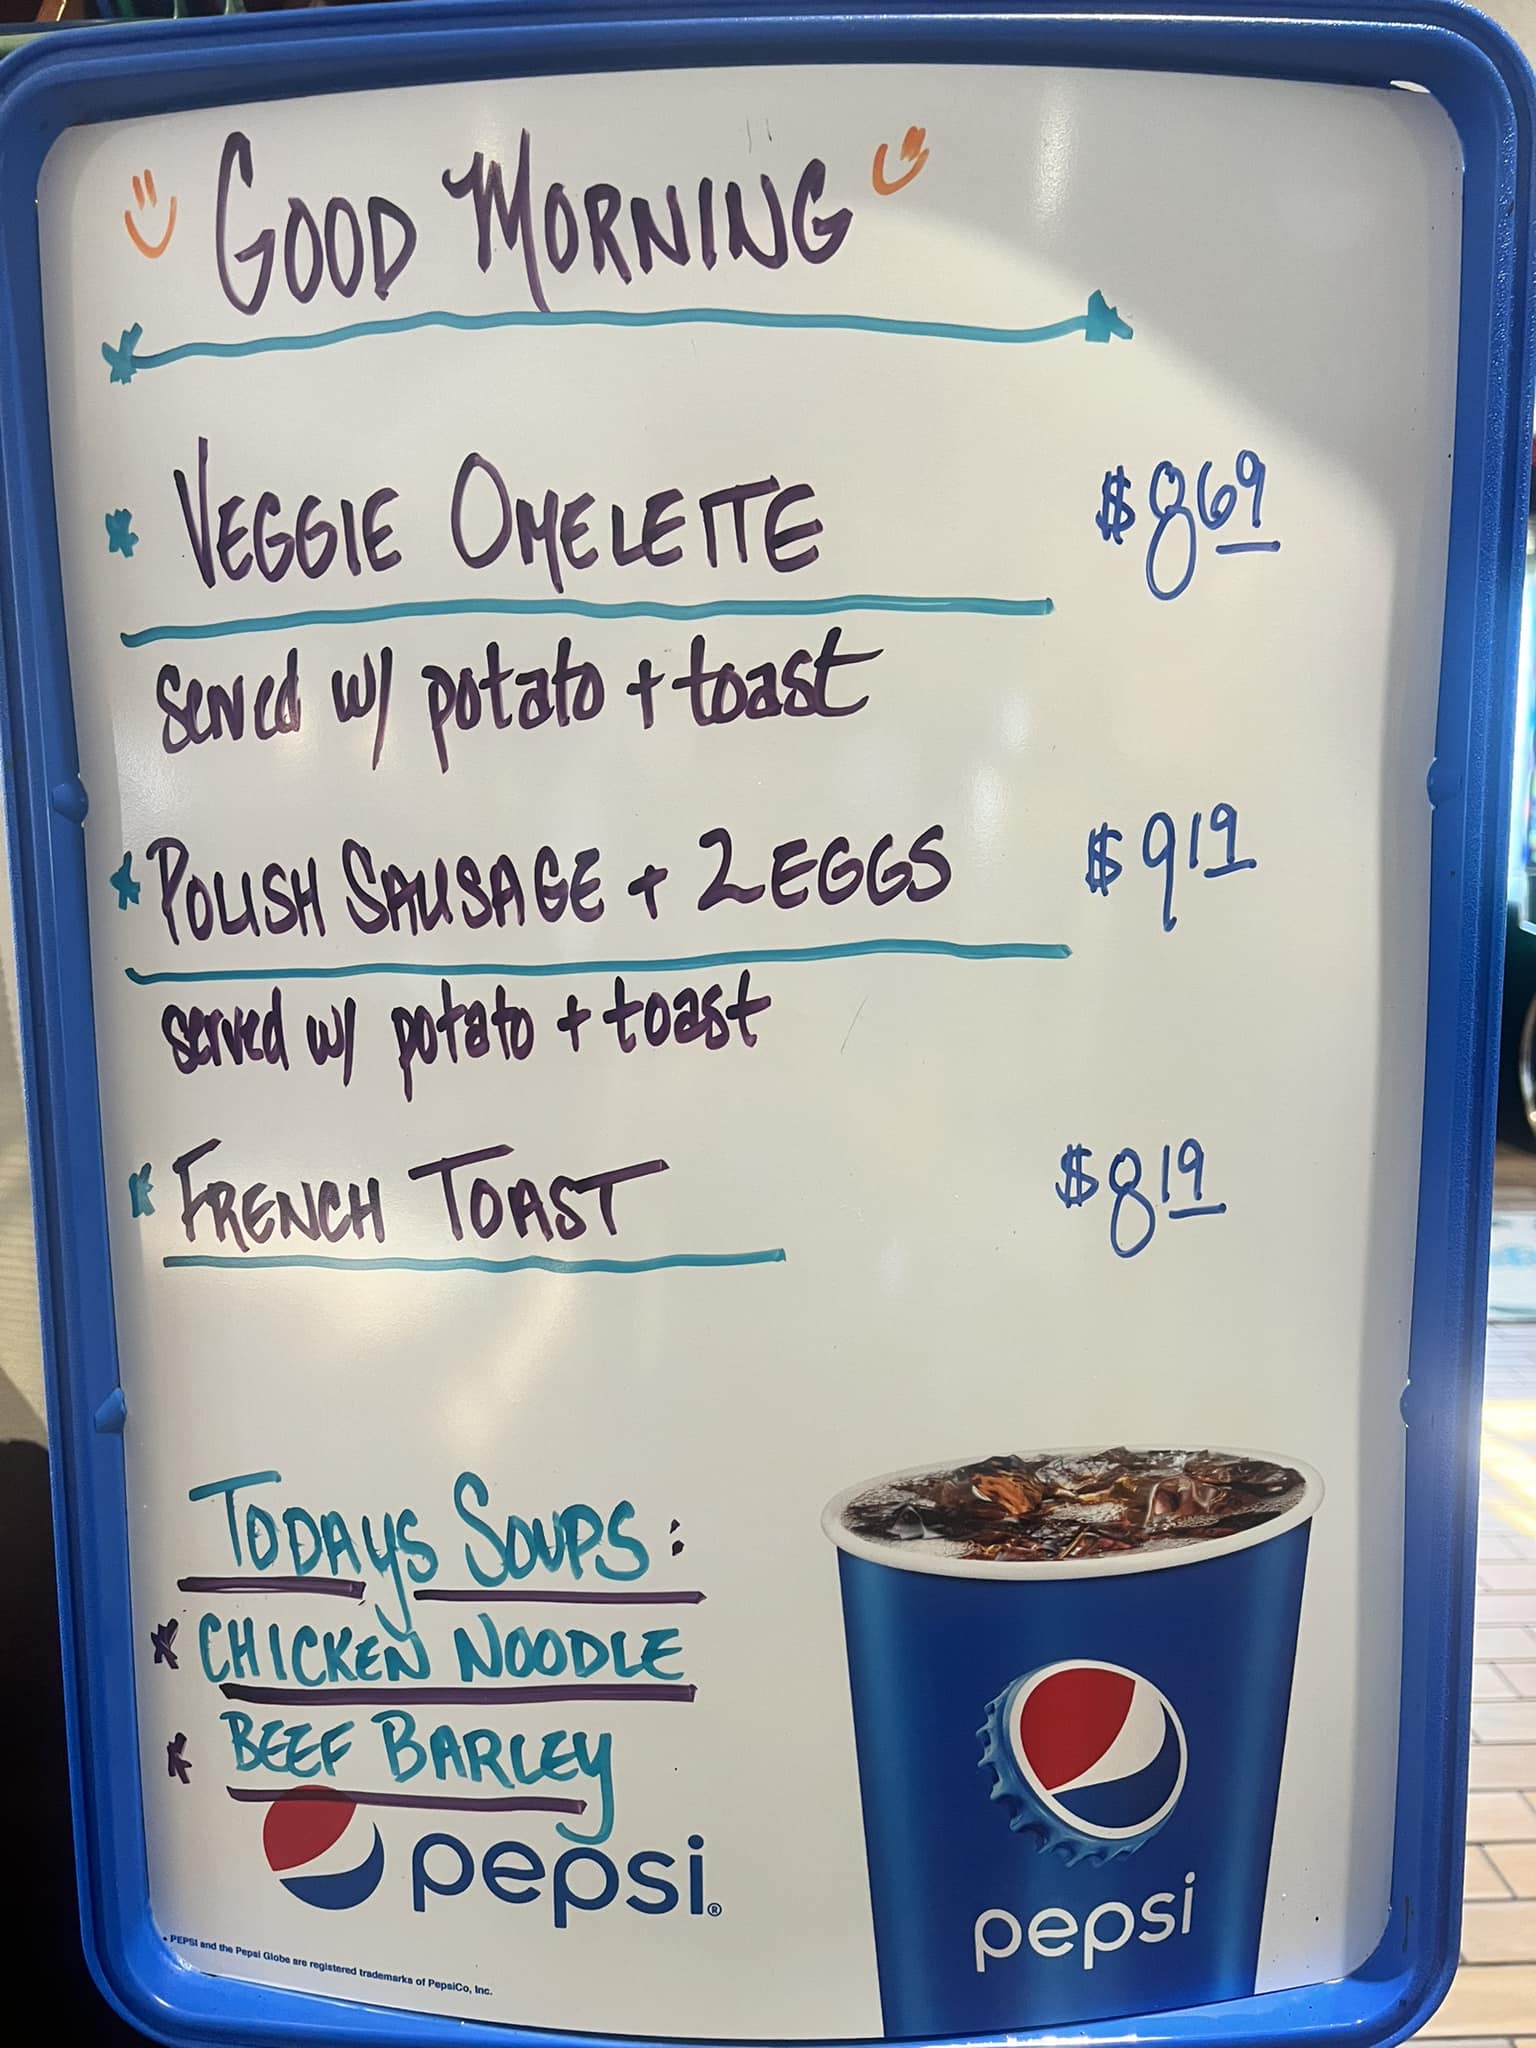 GOOD MORNING
VEGGIE OMELETTE $869
served w/ potato + toast
POLISH SAUSAGE + 2 EGGS $919
served w/ potato + toast
FRENCH TOAST $819
TODAYS SOUPS:
CHICKEN NOODLE
BEEF BARLEY
pepsi®
pepsi
PEPSI and the Pepsi Globe are registered trademarks of PepsiCo, Inc.